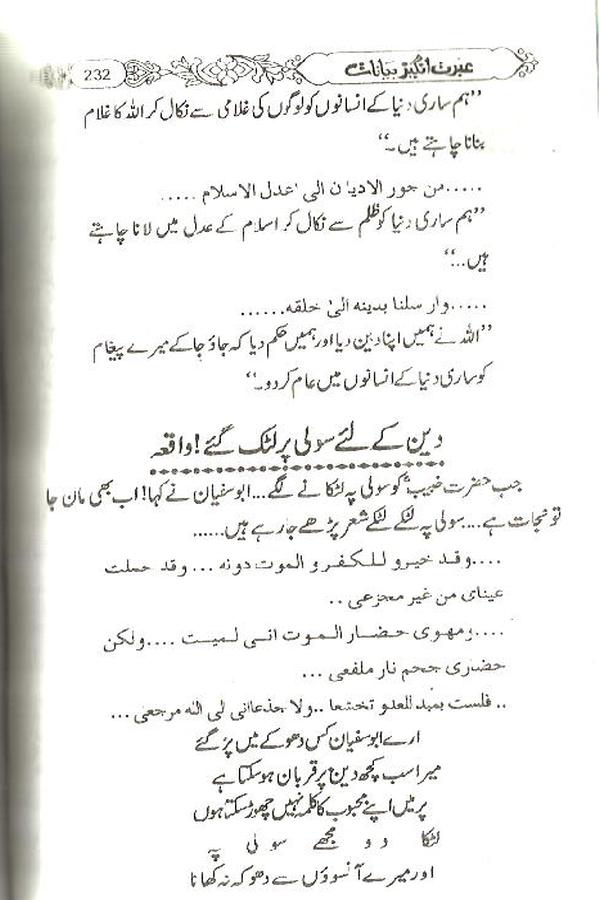 عبرت انگیز بیانات
232
”ہم ساری دنیا کے انسانوں کو لوگوں کی غلامی سے نکال کر اللہ کا غلام
بنانا چاہتے ہیں۔“
.....من جور الادیان الی عدل الاسلام .....
”ہم ساری دنیا کو ظلم سے نکال کر اسلام کے عدل میں لانا چاہتے
ہیں..“
.....وار سلنا بدینه الیٰ خلقه......
”اللہ نے ہمیں اپنا دین دیا اور ہمیں حکم دیا کہ جاؤ جا کے میرے پیغام
کو ساری دنیا کے انسانوں میں عام کر دو۔“
دین کے لئے سولی پر لٹک گئے! واقعہ
جب حضرت خبیبؓ کو سولی پہ لٹکانے لگے...ابوسفیان نے کہا! اب بھی مان جا
تو نجات ہے....سولی پہ لٹکے لٹکے شعر پڑھے جا رہے ہیں......
....وقد خیرو للکفر و الموت دونه ... وقد حملت
عینای من غیر مجزعی ..
....ومهوی حضار الموت انی لمیت ....ولکن
حضاری جحم نار ملفعی ...
.. فلست بمبد للعدو تخشعا ..ولا جذعاانی لی الله مرجعی ...
ارے ابوسفیان کس دھوکے میں پڑ گئے
میرا سب کچھ دین پر قربان ہو سکتا ہے
پر میں اپنے محبوب کا کلمہ نہیں چھوڑ سکتا ہوں
لٹکا دو مجھے سولی پہ
اور میرے آنسوؤں سے دھوکہ نہ کھانا